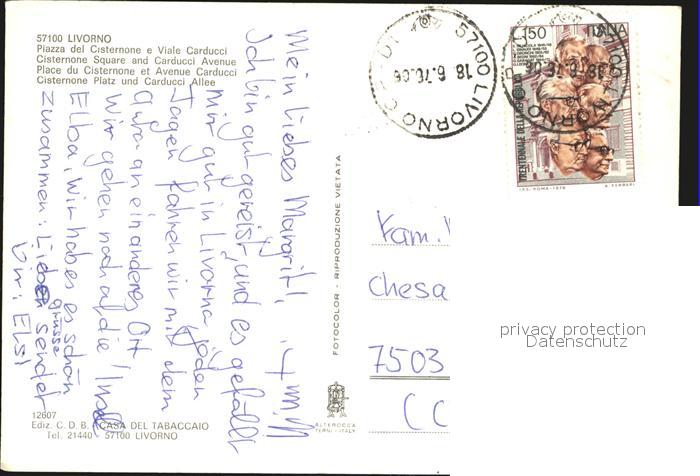 57100 LIVORNO
Piazza del Cisternone e Viale Carducci
Cisternone Square and Carducci Avenue
Place du Cisternone et Avenue Carducci
Cisternone Platz und Carducci Allee
Mein liebes Margritli,
Ich bin gut gereist, und es gefällt
mir gut in Livorno, jeden
Tagen fahren wir mit dem
Auto an ein anderes Ort
Wir gehen noch auf die Insel
Elba, wir haben es schön
zusammen: Liebe Grüsse sendet
Elsi
12607
Ediz. C. D. B. CASA DEL TABACCAIO
Tel. 21440 - 57100 LIVORNO
FOTOCOLOR - RIPRODUZIONE VIETATA
ALTEROCCA
TERNI-ITALY
57100 LIVORNO
18.6.76
L.150 ITALIA
TRENTENNALE DELLA REPUBBLICA
I.P.S.-ROMA-1976
A. FERRARI
Fam.
Chesa
7503
privacy protection
Datenschutz